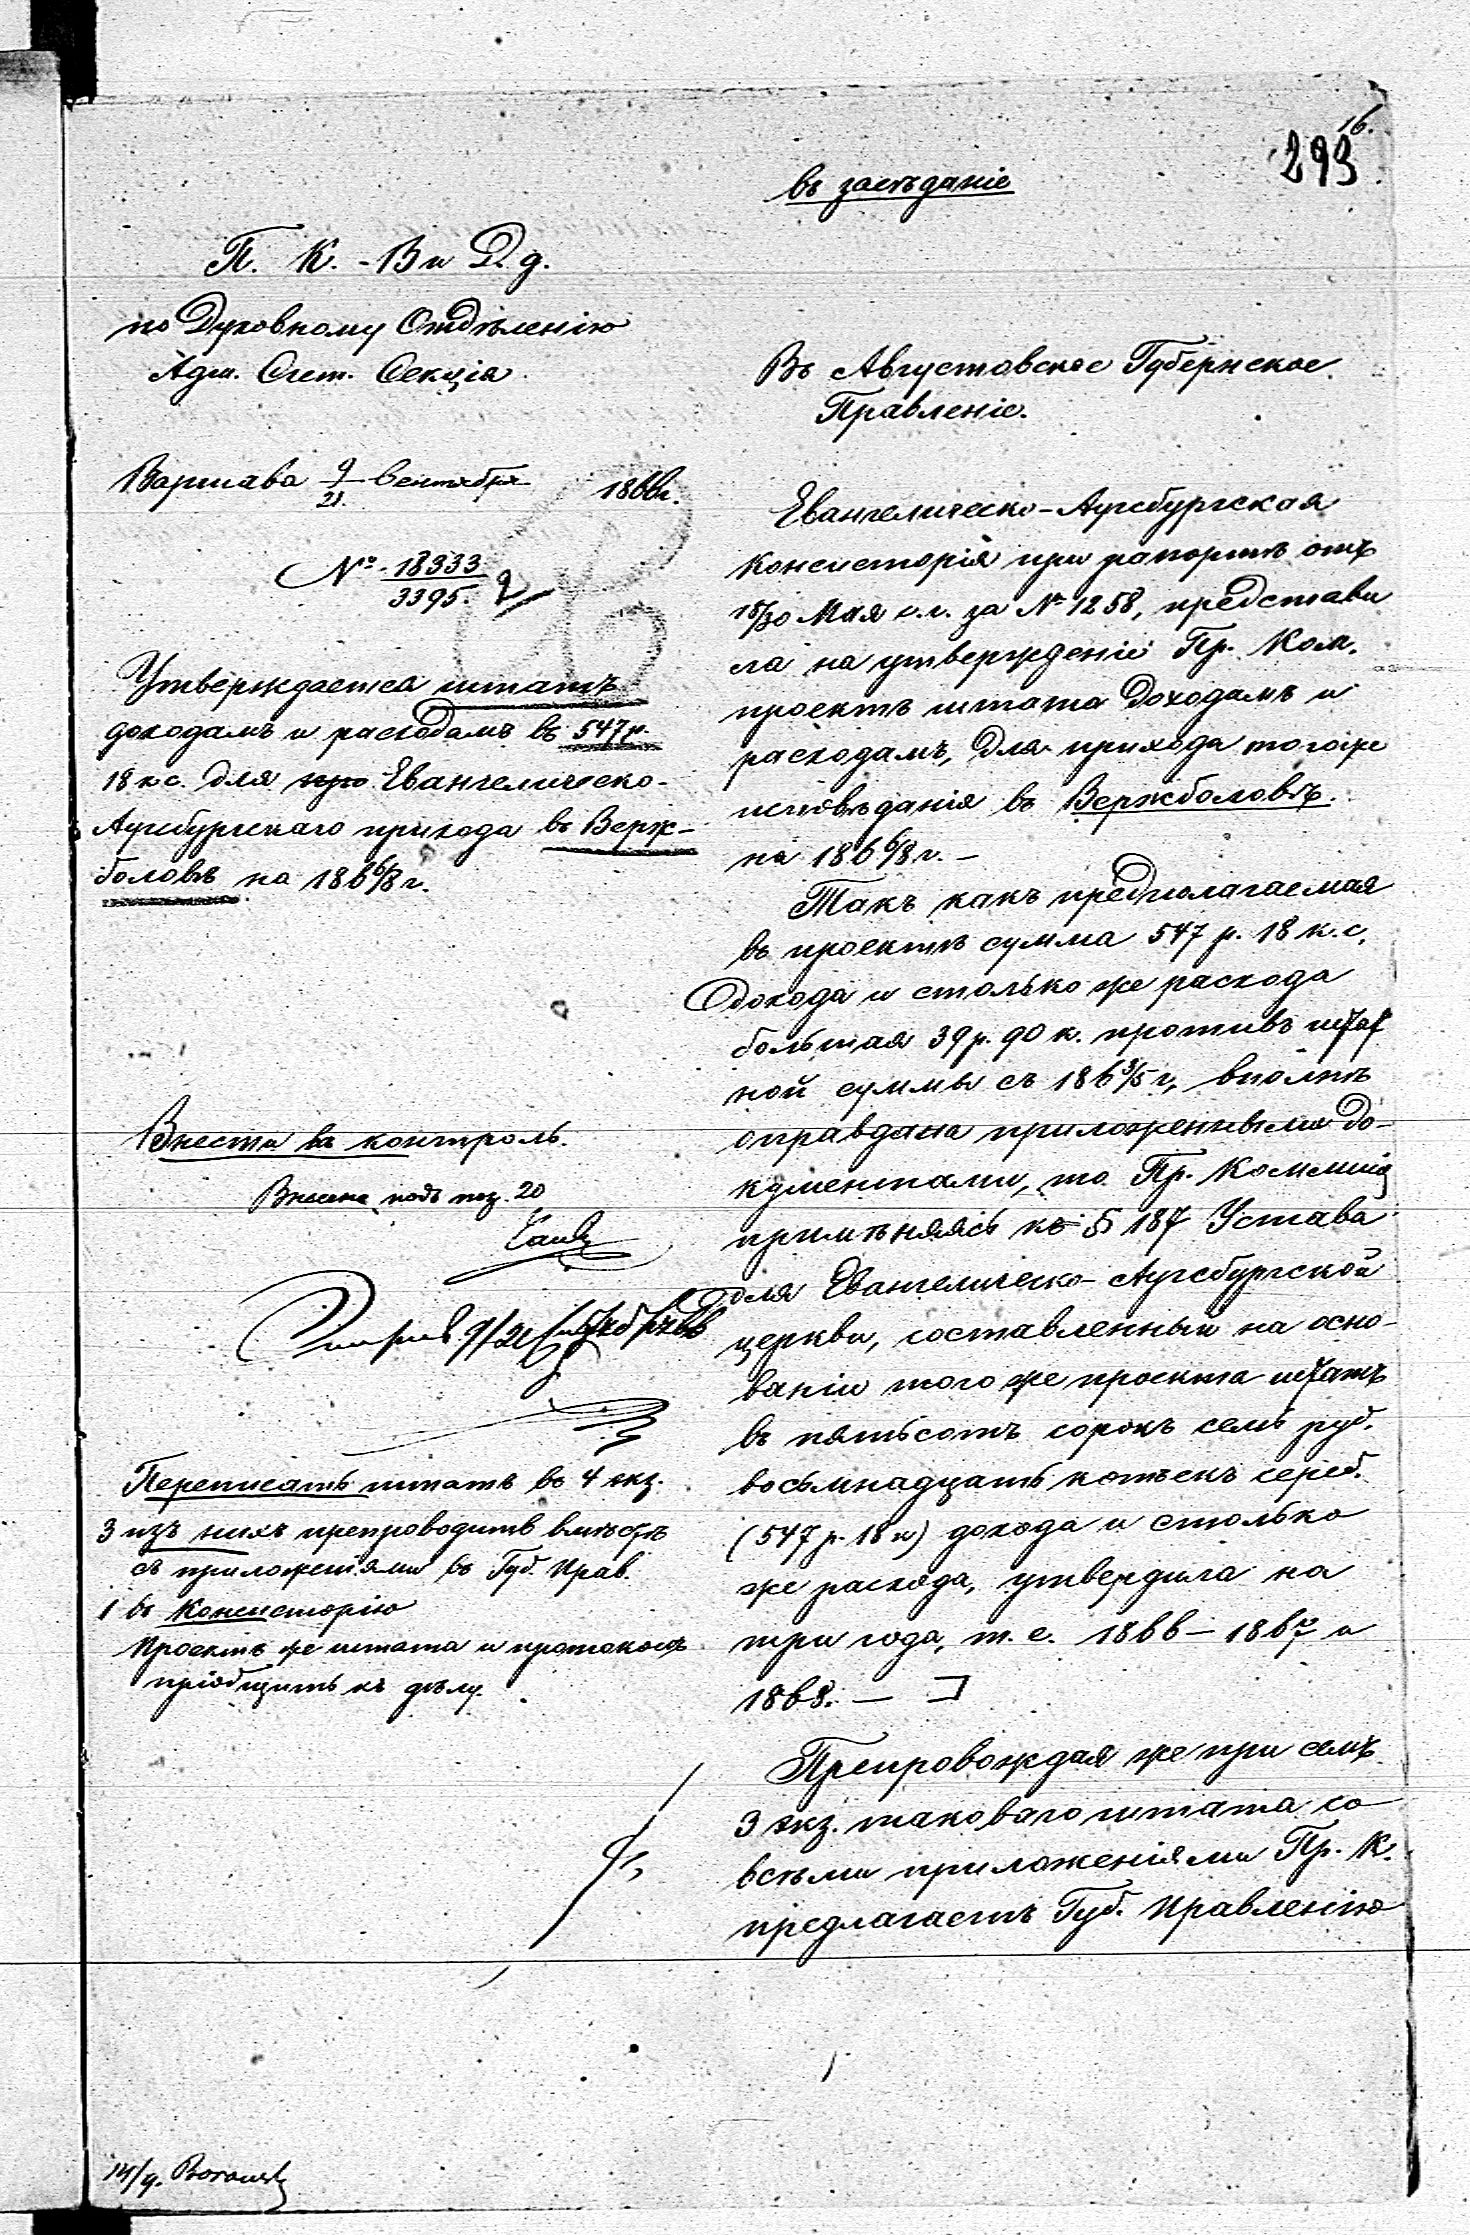 16.
293
въ засѣданіе
П. К. - В и Д. д.
по Духовному Отдѣленію
Адм. Счет. Секція
Варшава 9/21. Сентября 1866г.
№ 18333/3395.
Утверждается штатъ
доходамъ и расходамъ въ 547 р.
18 к с. для Евангелическо-
Аугсбургскаго прихода въ Верж-
боловѣ на 186 6/8 г.
Внести въ контроль.
Внесено подъ поз. 20
9/21
Переписать штатъ въ 4 экз.
3 изъ нихъ препроводить вмѣстѣ
съ приложеніями въ Губ. Прав.
1 въ Консисторію
Проектъ же штата и протоколъ
пріобщить къ дѣлу.
14/9.
Въ Августовское Губернское
Правленіе.
Евангелическо-Аугсбургская
Консисторія при рапортѣ отъ
18/30 Мая с.г. за № 1258, представи
ла на утвержденіе Пр. Ком.
проектъ штата доходамъ и
расходамъ, для прихода того же
исповѣданія въ Вержболовѣ.
на 186 6/8 г. —
Такъ какъ предполагаемая
въ проектѣ сумма 547 р. 18 к. с.
дохода и столько же расхода
большая 39 р. 90 к. противъ штат
ной суммы съ 186 3/5 г., вполнѣ
оправдана приложенными до-
кументами, то Пр. Коммисія
примѣняясь къ § 187 Устава
для Евангелическо-Аугсбургской
церкви, составленный на осно-
ваніи того же проекта штатъ
въ пятьсотъ сорокъ семь руб.
восьмнадцать копѣекъ сереб.
(547 р. 18 к) дохода и столько
же расхода, утвердила на
три года, т. е. 1866 — 1867 и
1868. —
Препровождая же при семъ
3 экз. таковаго штата со
всѣми приложеніями Пр. К.
предлагаетъ Губ. Правленію